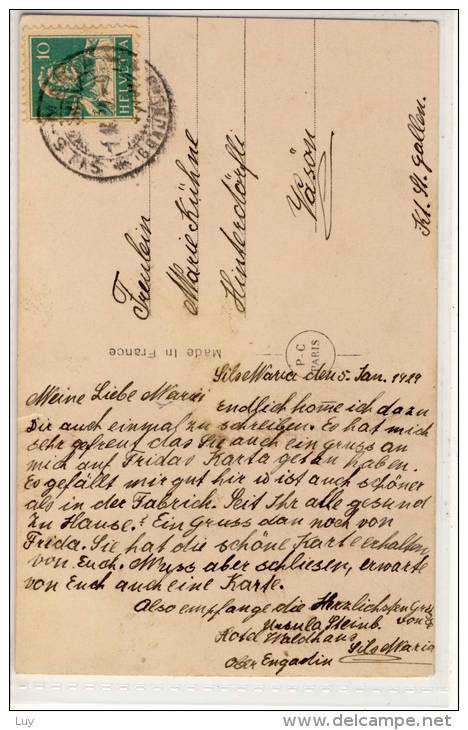 10
HELVETIA
Freulein
Marie Kühne
Hinterdörfli
Väsön
Kt. St. gallen.
Made in France
P-C
PARIS
Sils Maria den 5. Jan. 1929
Meine Liebe Marii
Endlich home ich dazu
Dir auch einmal zu schreiben. Es hat mich
sehr gefreut das Sie auch ein gruss an
mich auf Fridas Karta getan haben.
Es gefällt mir gut hir is ist auch schöner
als in der Fabrich. Seit Ihr alle gesund
zu Hause? Ein Gruss dan noch von
Frida. Sie hat die schöne Karte erhalten,
von Euch. Muss aber schliesen, erwarte
von Euch auch eine Karte.
Also empfange die Herzlichsten Grüs
von
Ursula Steinb.
Hotel Waldhaus
Sils Maria
Ober Engadin
Luy
www.delcampe.net